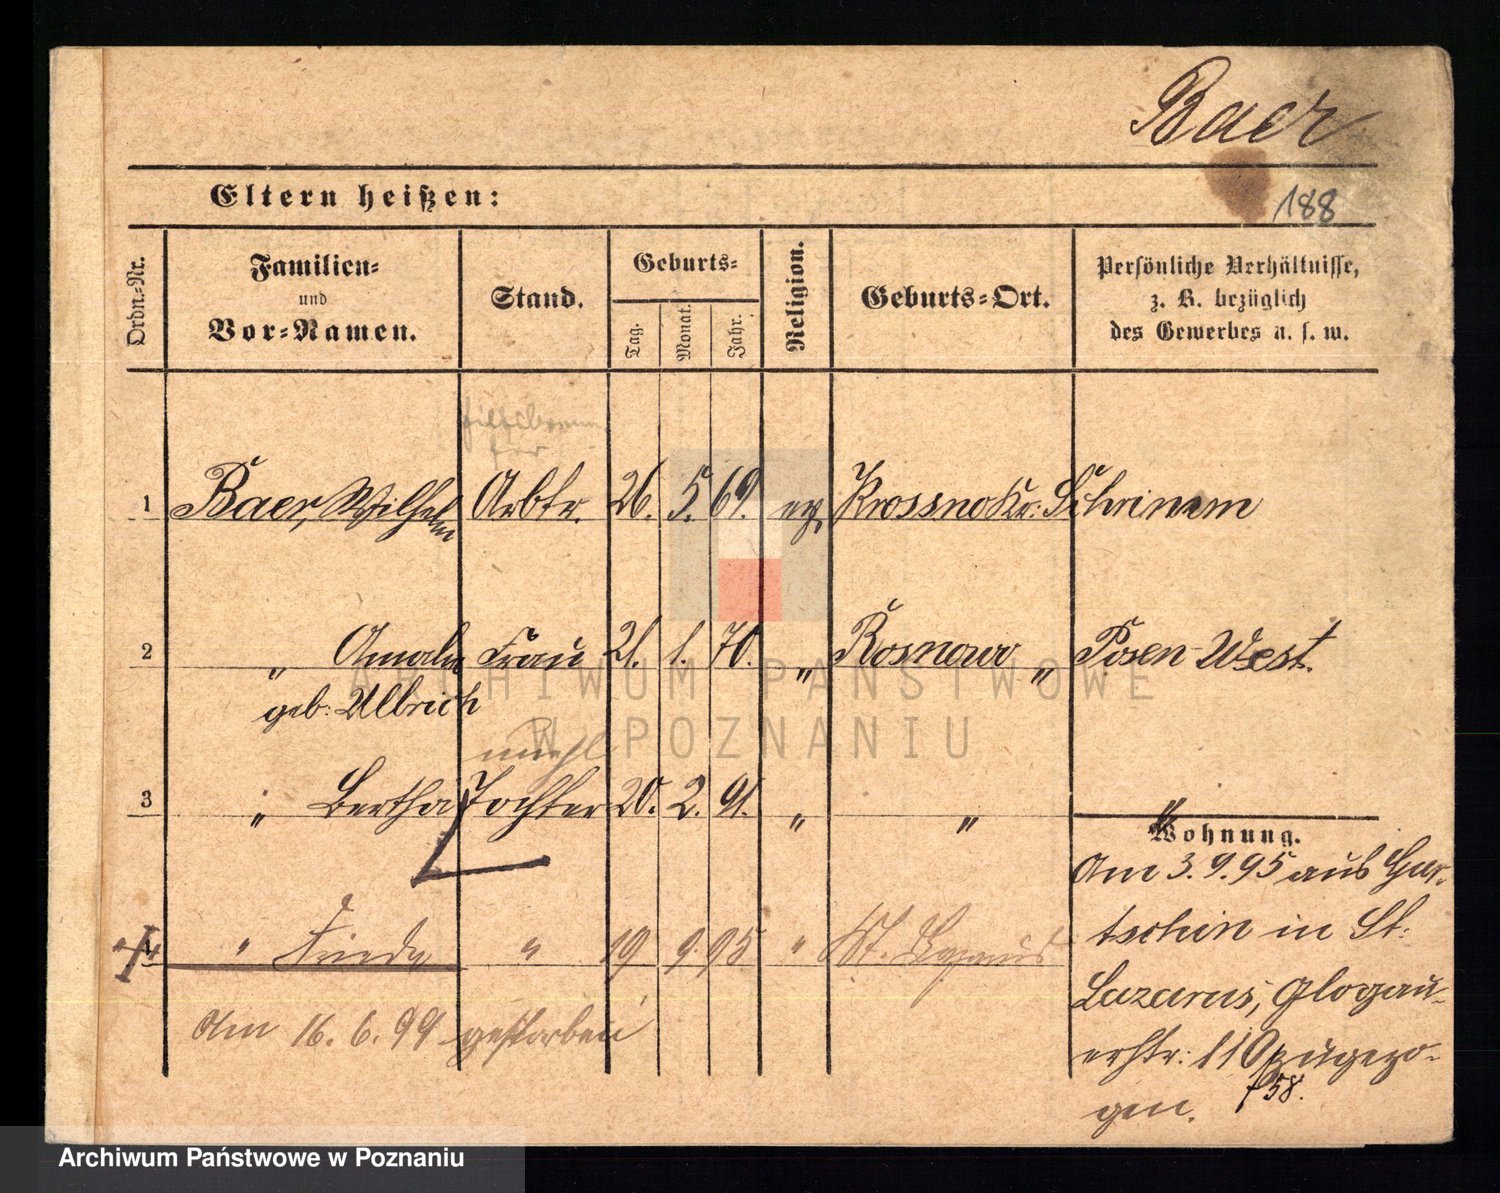 Baer
Eltern heißen:
188
Ordn.-Nr.
Familien-
und
Vor-Namen.
Stand.
Geburts-
Tag.
Monat.
Jahr.
Religion.
Geburts-Ort.
Persönliche Verhältnisse,
z. B. bezüglich
des Gewerbes u. s. w.
1 Baer, Wilhelm Arbtr. 26. 5. 69. ev. Krossno Kr: Schrimm
2 " Amalie Frau 21. 1. 70. " Rosnowo " Posen-West.
geb. Ullbrich
3 " Bertha Tochter 20. 2. 91. " " "
Wohnung.
Am 3.9.95 aus Gur-
tschin in St.
Lazarus, Glogau-
erstr: 110 zugezo-
gen. 58.
4 " Frieda " 19 9. 95 " St. Lazarus
Am 16. 6. 99 gestorben
ARCHIWUM PAŃSTWOWE
W POZNANIU
Archiwum Państwowe w Poznaniu